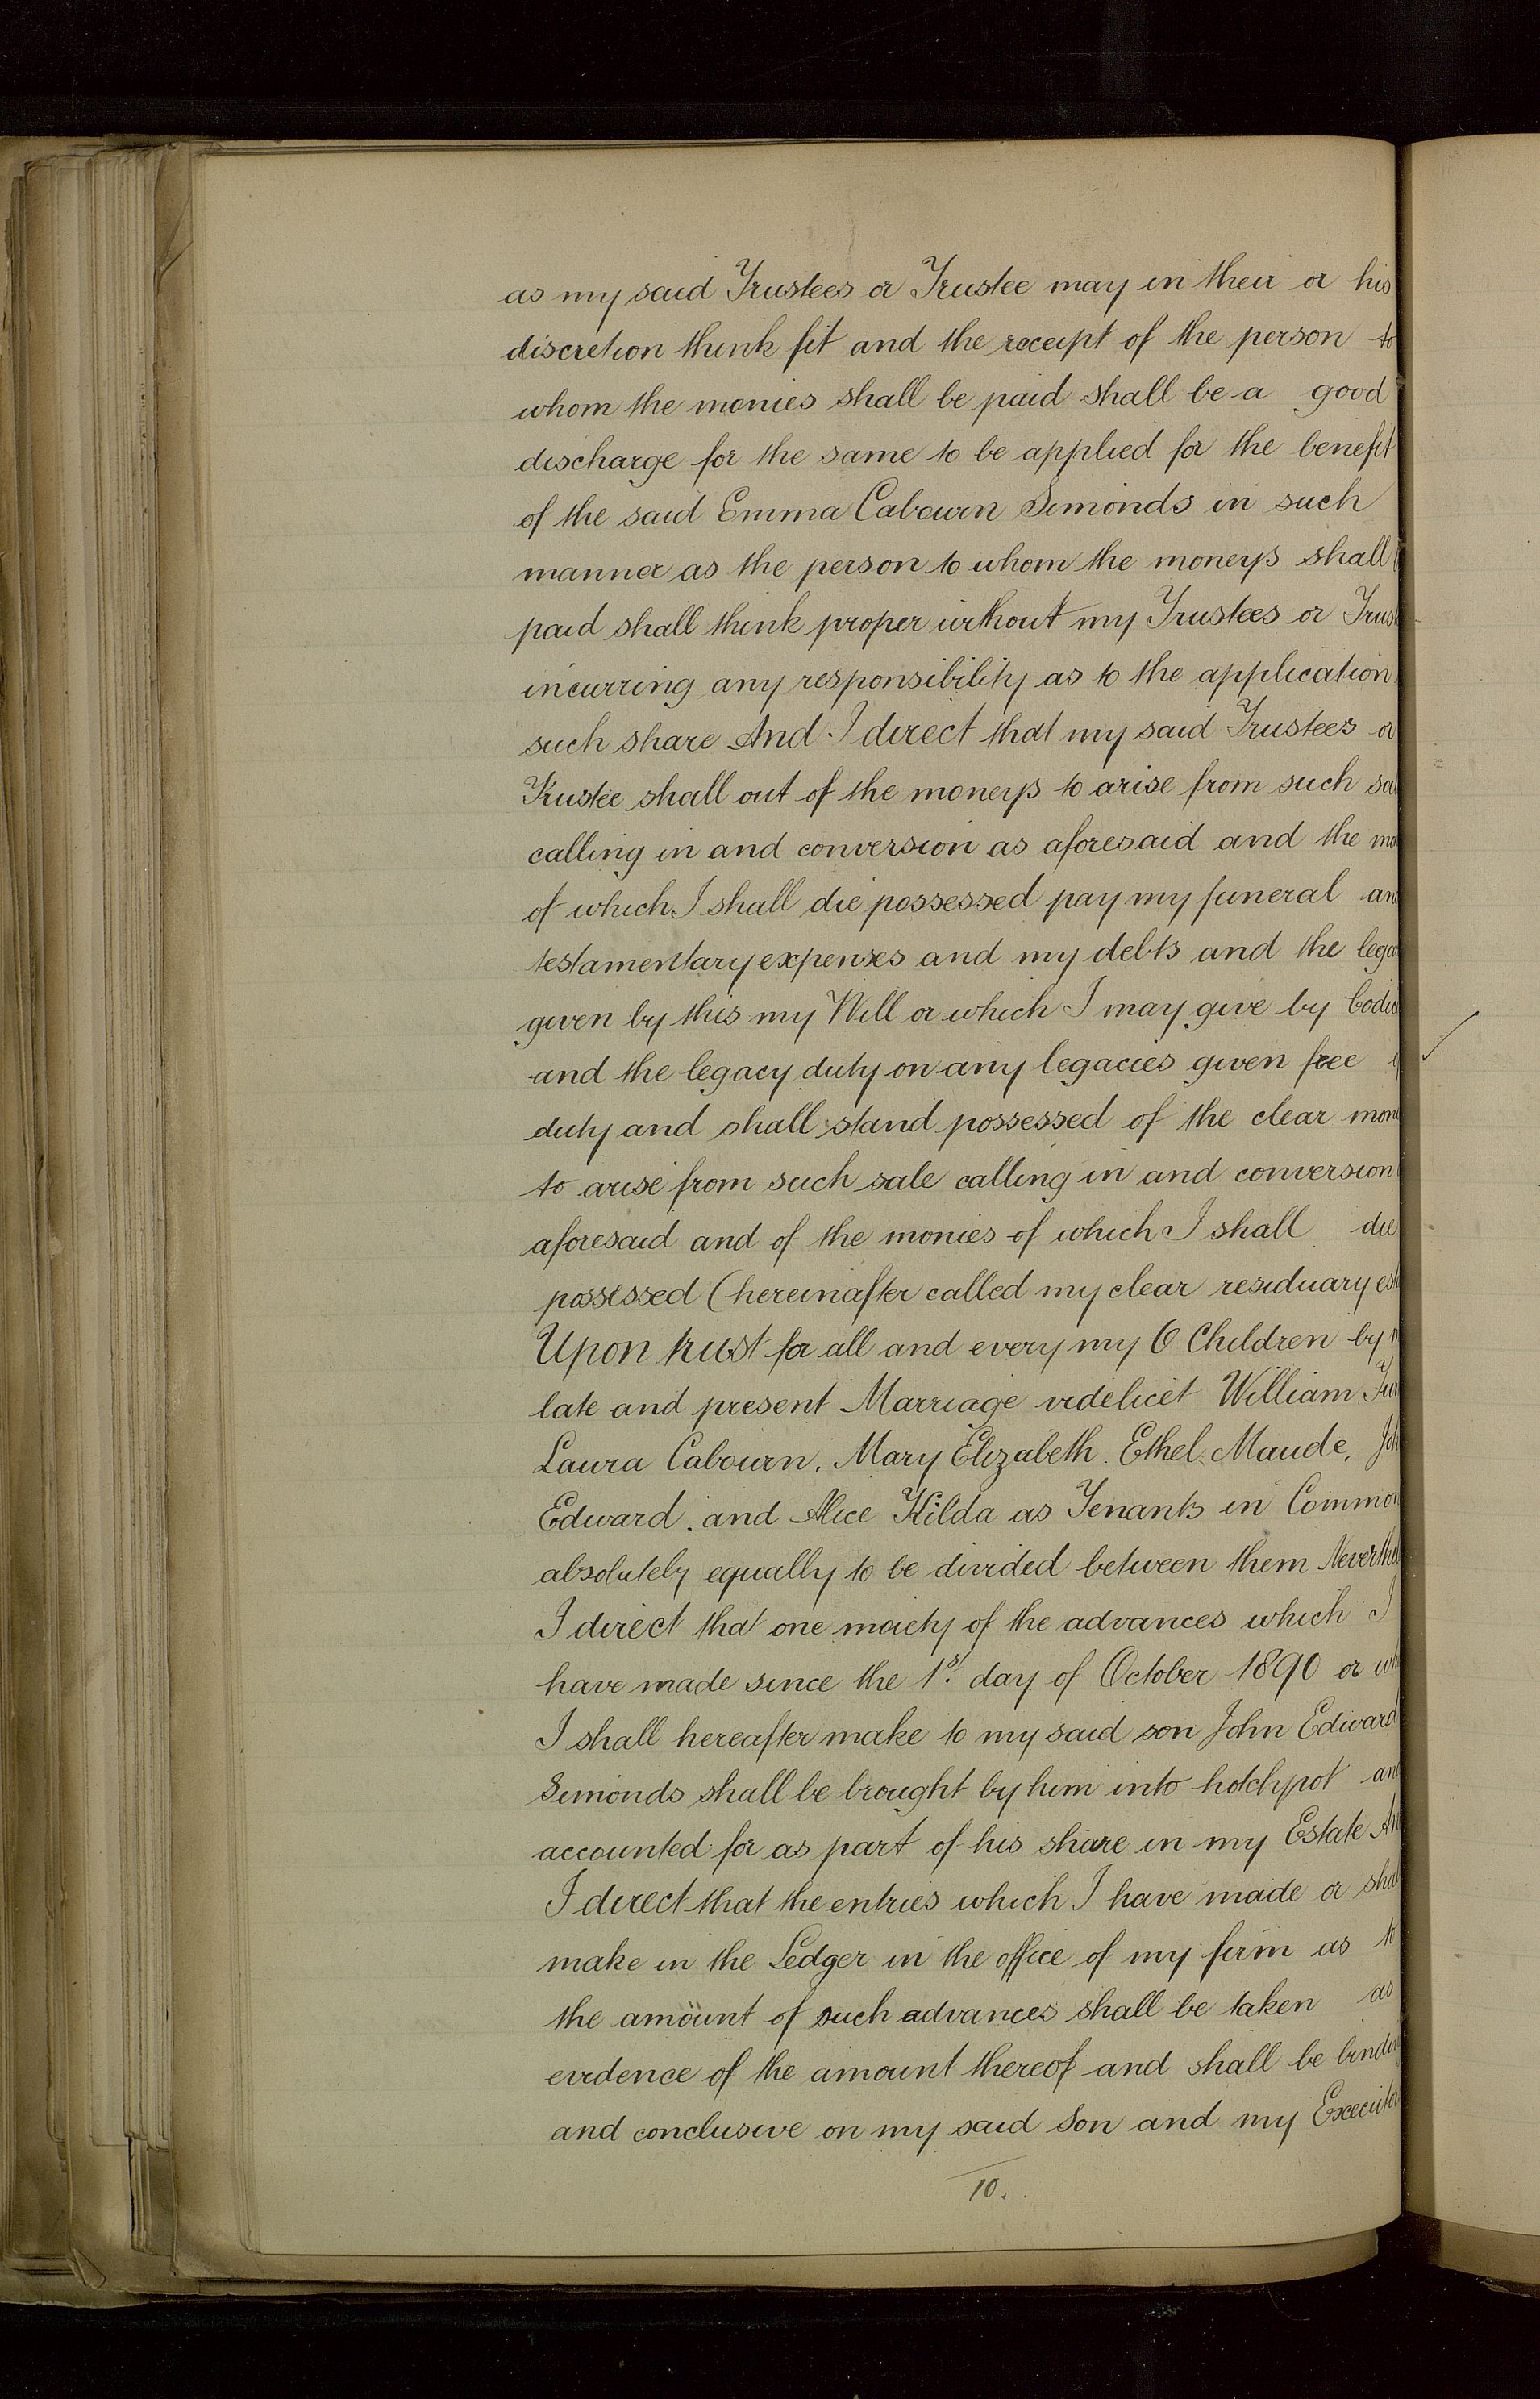 as my said Trustees or Trustee may in their or his
discretion think fit and the receipt of the person to
whom the monies shall be paid shall be a good
discharge for the same to be applied for the benefit
of the said Emma Cabourn Simonds in such
manner as the person to whom the moneys shall
paid shall think proper without my Trustees or Trus
incurring any responsibility as to the application
such share And I direct that my said Trustees or
Trustee shall out of the moneys to arise from such sa
calling in and conversion as aforesaid and the mo
of which I shall die possessed pay my funeral an
testamentary expenses and my debts and the lega
given by this my Will or which I may give by Codic
and the legacy duty on any legacies given free
duty and shall stand possessed of the clear mon
to arise from such sale calling in and conversion
aforesaid and of the monies of which I shall die
possessed (hereinafter called my clear residuary est
Upon trust for all and every my 6 Children by m
late and present Marriage videlicet William
Laura Cabourn, Mary Elizabeth. Ethel Maude, Joh
Edward. and Alice Kilda as Tenants in Common
absolutely equally to be divided between them Neverthel
I direct that one moiety of the advances which I
have made since the 1st. day of October 1890 or wh
I shall hereafter make to my said son John Edward
Simonds shall be brought by him into hotchpot and
accounted for as part of his share in my Estate An
I direct that the entries which I have made or shal
make in the Ledger in the office of my firm as to
the amount of such advances shall be taken as
evidence of the amount thereof and shall be bindin
and conclusive on my said Son and my Executor
10.